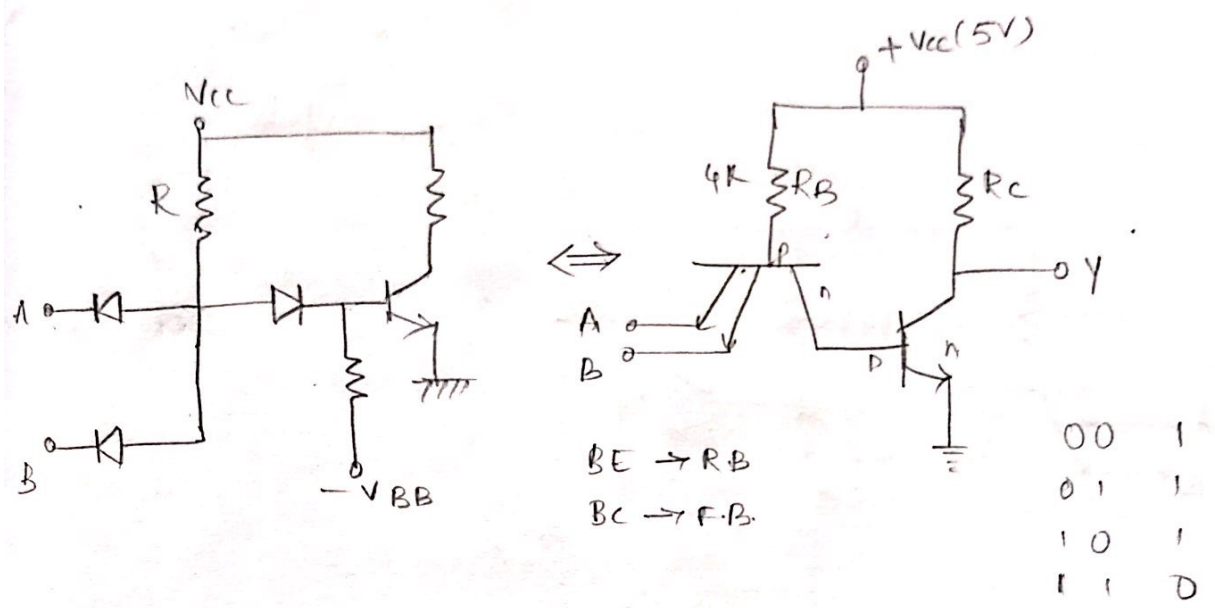 Vcc
R
A
B
-VBB
+Vcc (5V)
4K RB
RC
P
n
Y
A
B
P
n
BE → R.B
BC → F.B.
00 1
01 1
10 1
11 0